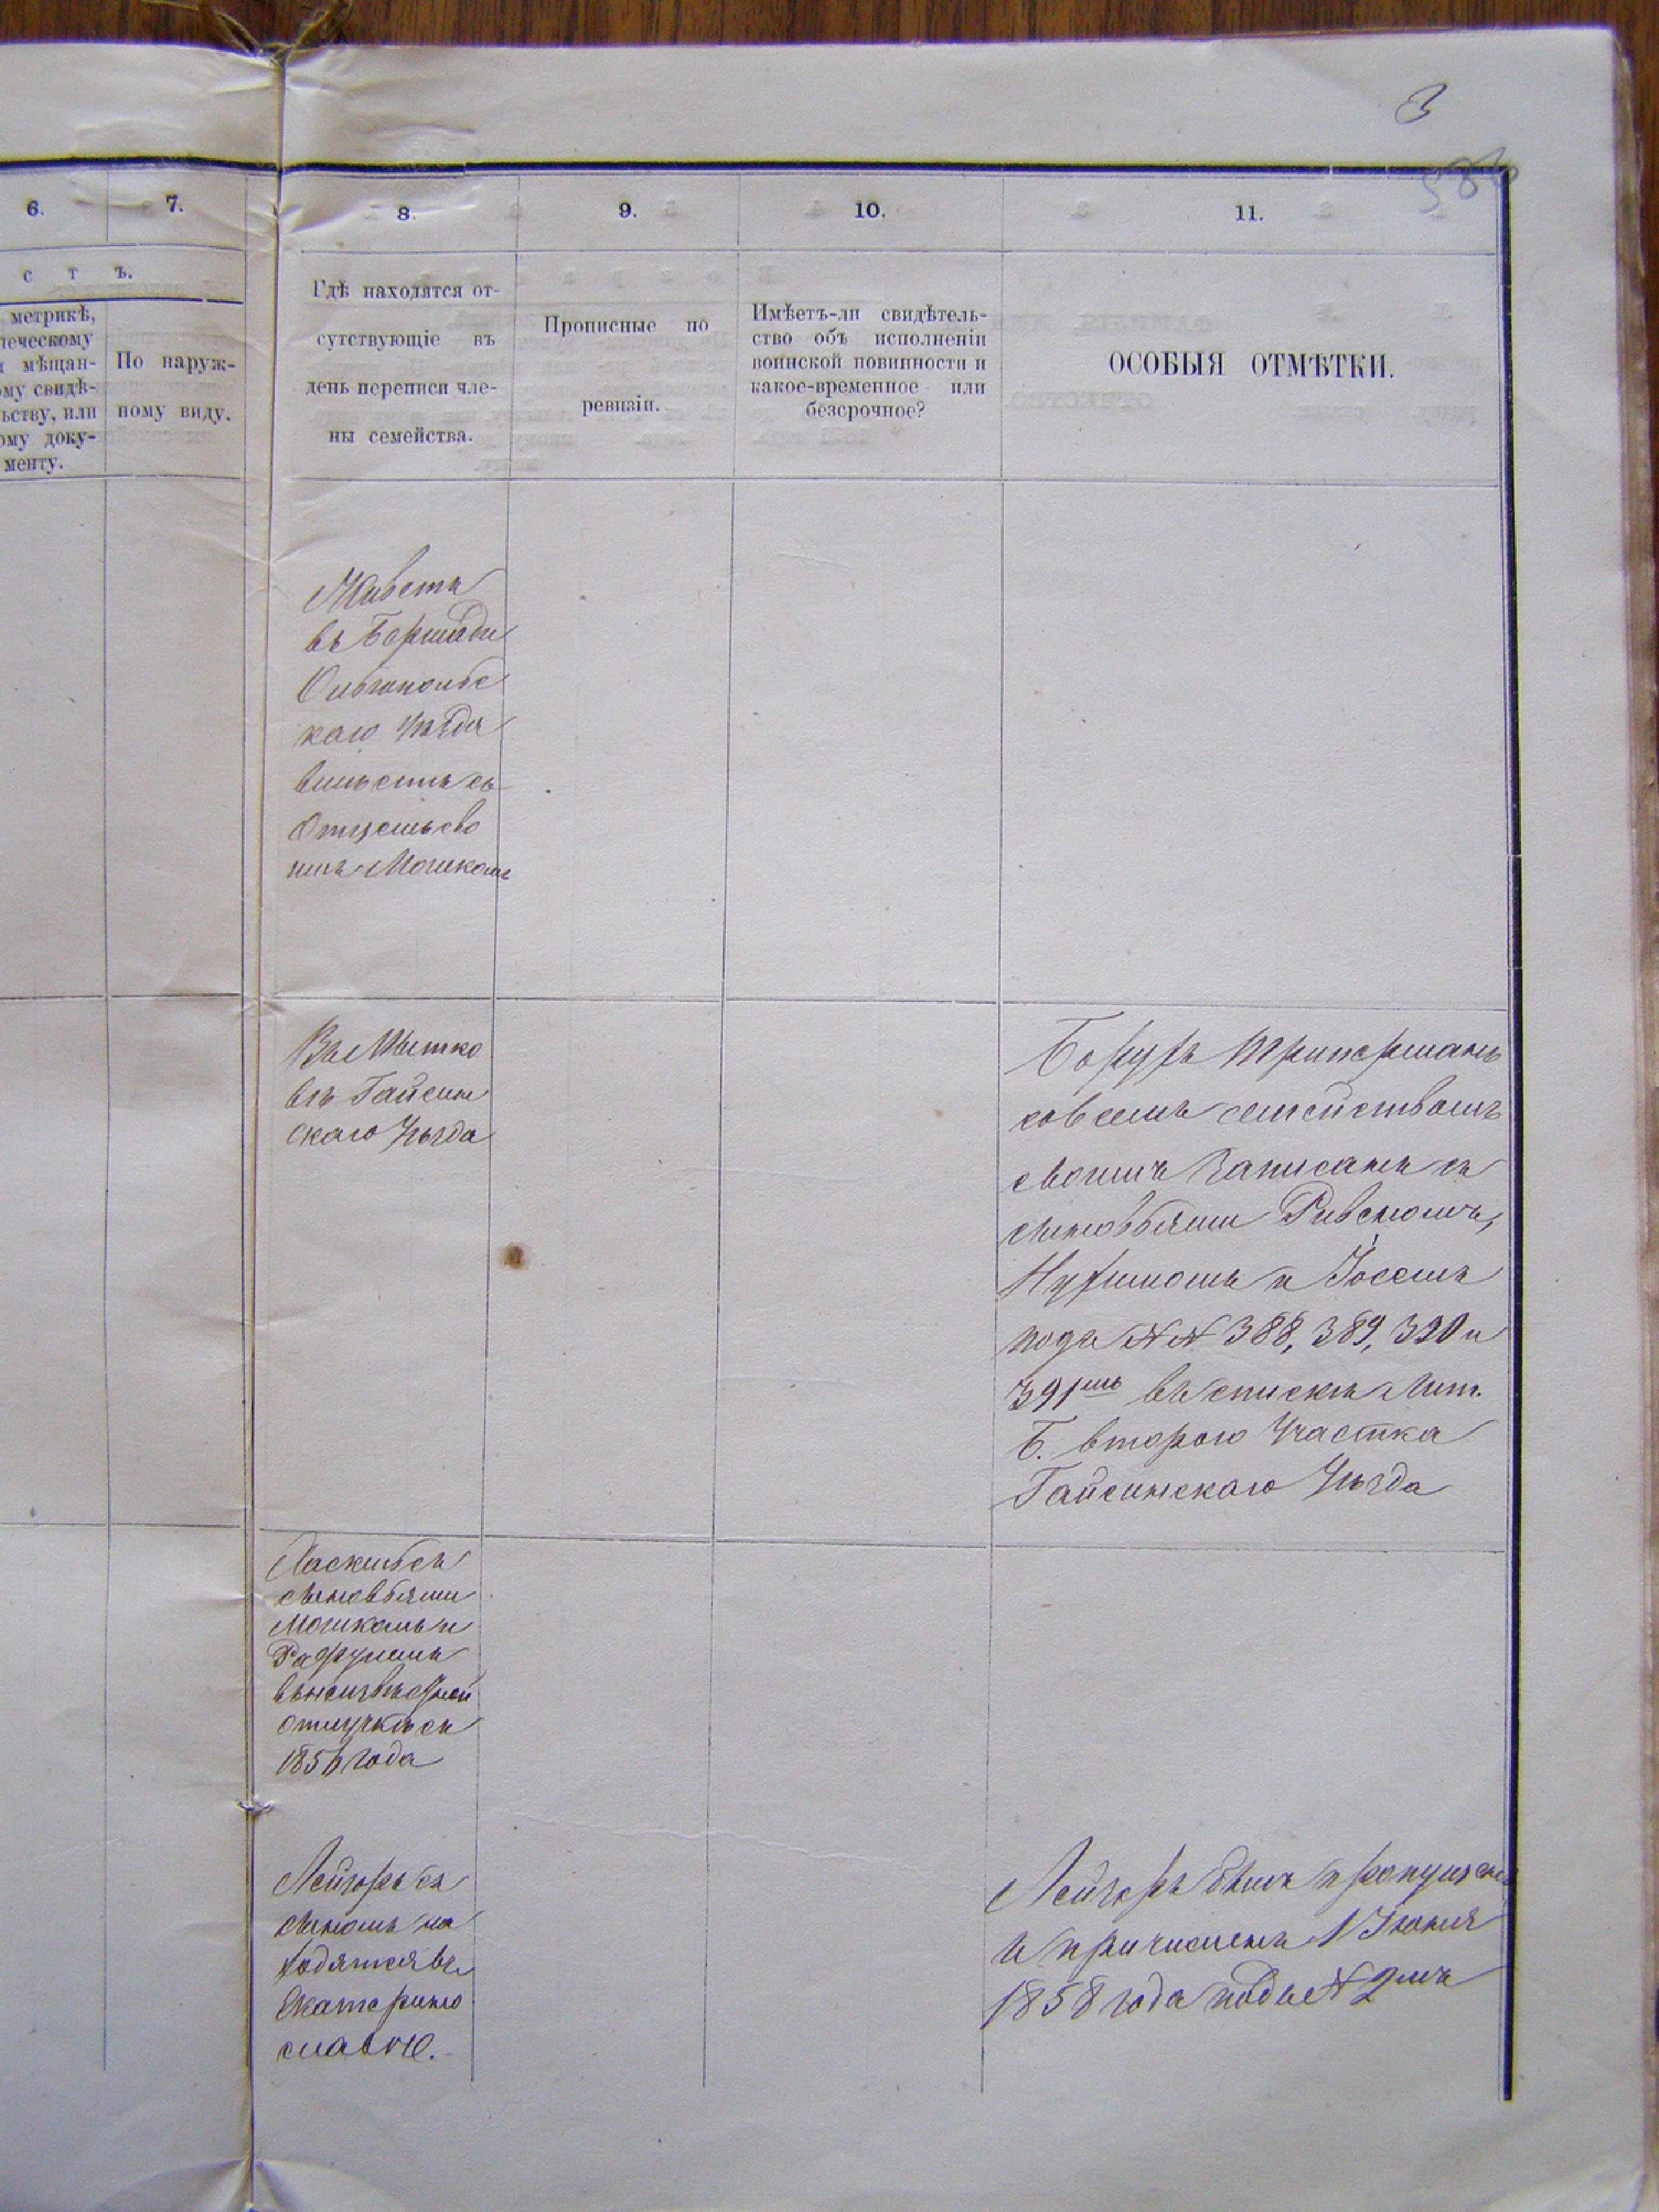 3
6.
7.
8.
9.
10.
11.
с т ъ.
метрикѣ,
печескому
мѣщан-
ому свидѣ-
ьству, или
ому доку-
менту.
По наруж-
ному виду.
Гдѣ находятся от-
сутствующіе въ
день переписи чле-
ны семейства.
Прописные по
ревизіи.
Имѣетъ-ли свидѣтель-
ство объ исполненіи
воинской повинности и
какое-временное или
безсрочное?
ОСОБЫЯ ОТМѢТКИ.
Живетъ
въ Бершади
Ольгопольс
каго уѣзда
вмѣстѣ съ
Отцемъ сво
имъ Мошкомъ
Въ Мытко
вѣ Гайсин
скаго Уѣзда
Борухъ Триперманъ
со всемъ семействомъ
своимъ записанъ съ
сыновьями Рувеномъ,
Нухимомъ и Іосемъ
подъ №№ 388, 389, 390 и
391мъ въ спискѣ Лит.
Б. второго Участка
Гайсинскаго Уѣзда
Хаскель съ
сыновьями
Мошкомъ и
Рафуломъ
въ неизвѣстной
отлучкѣ съ
1856 года
Лейзоръ съ
сыномъ на
ходятся въ
Екатерино
славлѣ.
Лейзоръ былъ пропущенъ
и причисленъ 1 Іюня
1858 года подъ № 2мъ